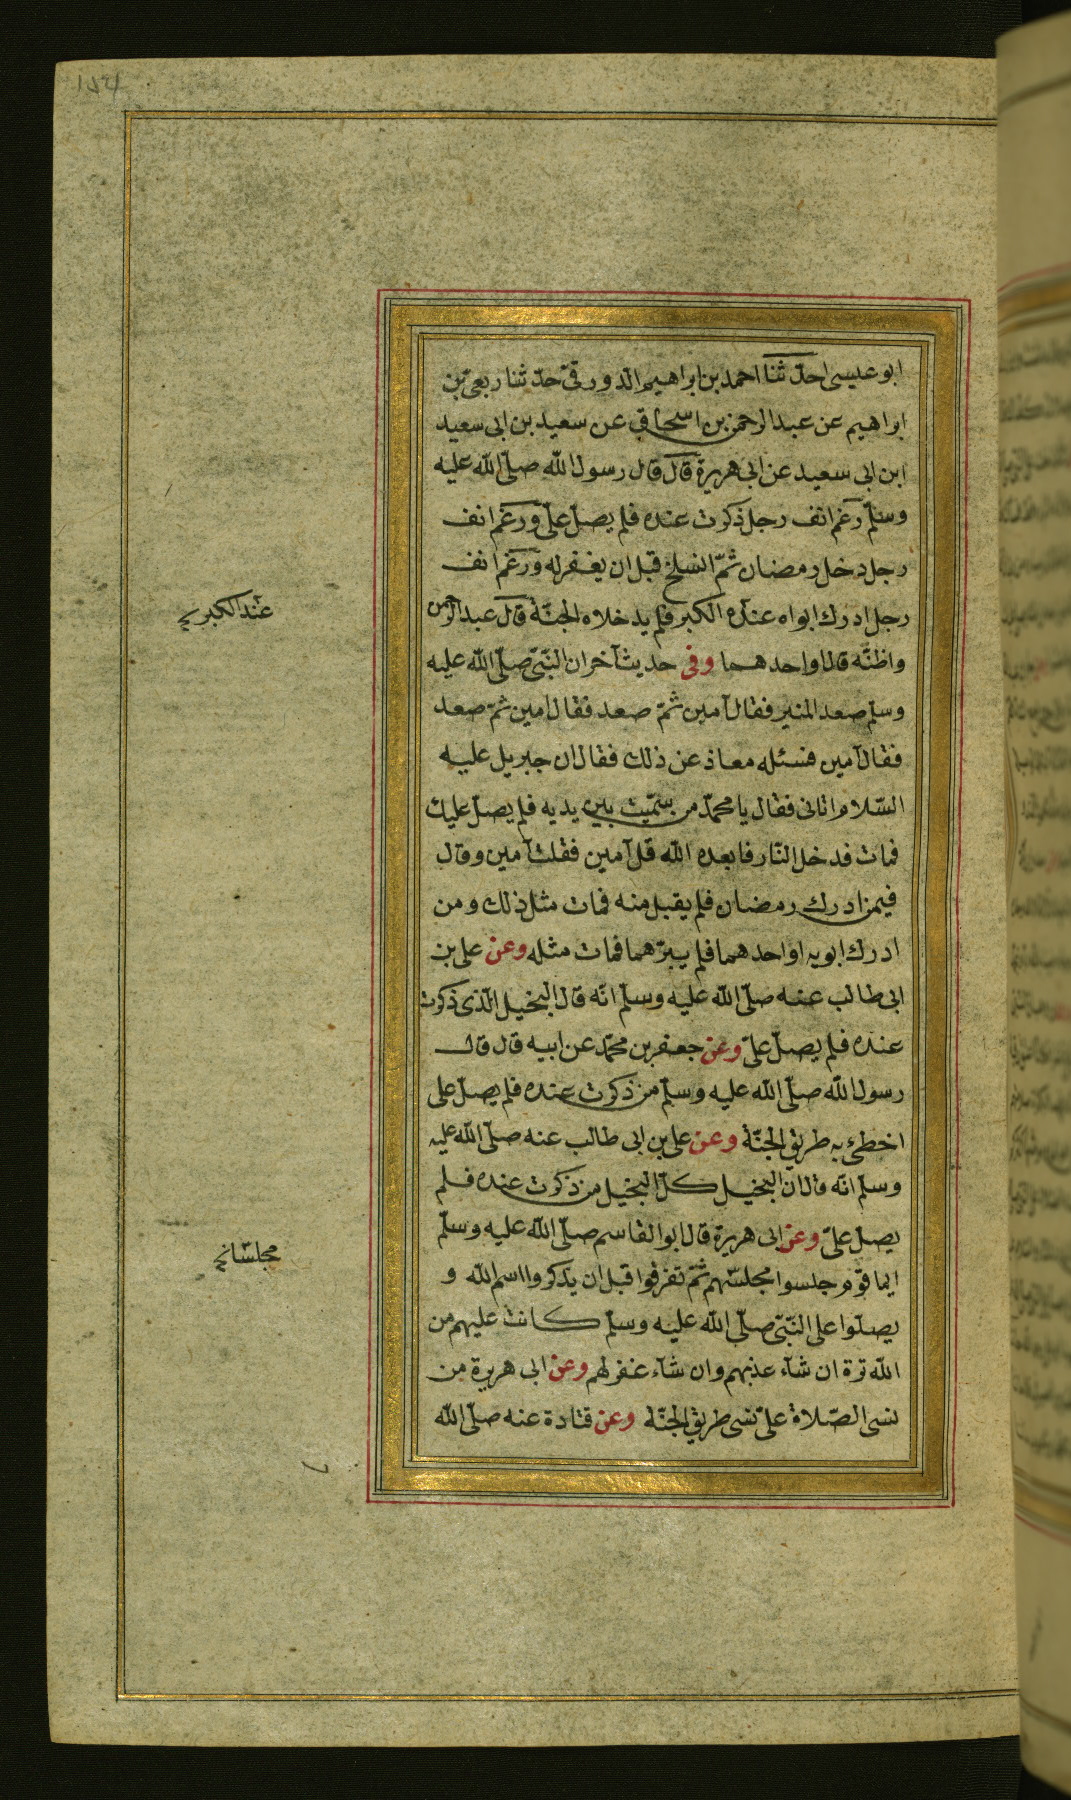 ابو عيسى احدّثنا احمد بن ابراهيم الدورقى حدّثنا ربعى بن
ابراهيم عن عبد الرحمن بن اسحاق عن سعيد بن ابى سعيد
ابن ابى سعيد عن ابى هريرة قال قال رسول الله صلّى الله عليه
وسلّم رغم انف رجل ذكرت عنده فلم يصلّ علىّ ورغم انف
رجل دخل رمضان ثمّ انسلخ قبل ان يغفر له ورغم انف
رجل ادرك ابواه عنده الكبر فلم يدخلاه الجنّة قال عبد الرحمن
واظنّه قال او احدهما وفى حديث آخر ان النّبىّ صلّى الله عليه
وسلّم صعد المنبر فقال آمين ثمّ صعد فقال آمين ثمّ صعد
فقال آمين فسئله معاذ عن ذلك فقال ان جبريل عليه
السّلام اتانى فقال يا محمّد من سمّيت بين يديه فلم يصلّ عليك
فمات فدخل النّار فابعده الله قل آمين فقلت آمين وقال
فيمن ادرك رمضان فلم يقبل منه فمات مثل ذلك ومن
ادرك ابويه او احدهما فلم يبرّهما فمات مثله وعن على بن
ابى طالب عنه صلّى الله عليه وسلّم انّه قال البخيل الّذى ذكرت
عنده فلم يصلّ علىّ وعن جعفر بن محمّد عن ابيه قال قال
رسول الله صلّى الله عليه وسلّم من ذكرت عنده فلم يصلّ على
اخطئ به طريق الجنّة وعن على بن ابى طالب عنه صلّى الله عليه
وسلّم انّه قال ان البخيل كلّ البخيل من ذكرت عنده فلم
يصلّ علىّ وعن ابى هريرة قال ابو القاسم صلّى الله عليه وسلّم
ايما قوم جلسوا مجلسهم ثمّ تفرقوا قبل ان يذكروا اسم الله و
يصلّوا على النّبىّ صلّى الله عليه وسلّم كانت عليهم من
الله ترة ان شآء عذبهم وان شآء غفر لهم وعن ابى هريرة من
نسى الصّلاة علىّ نسى طريق الجنّة وعن قتادة عنه صلّى الله
عند الكبر
مجلسًا